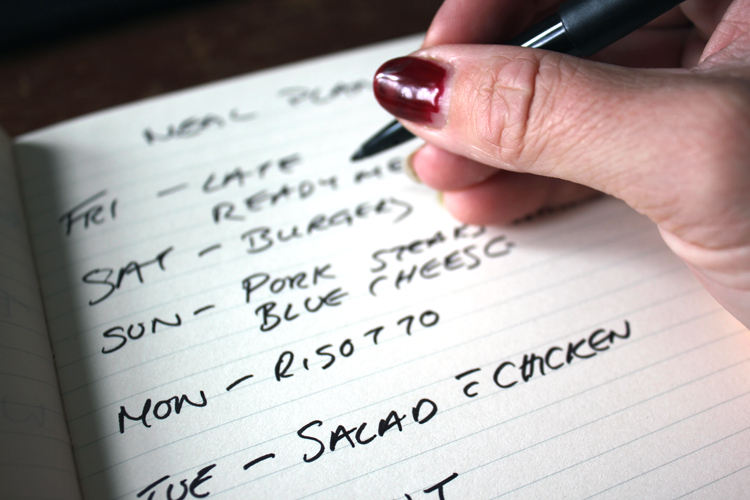 MEAL PLAN
FRI - LATE
READY ME
SAT - BURGERS
SUN - PORK STEAKS
BLUE CHEESE
MON - RISOTTO
TUE - SALAD c̄ CHICKEN